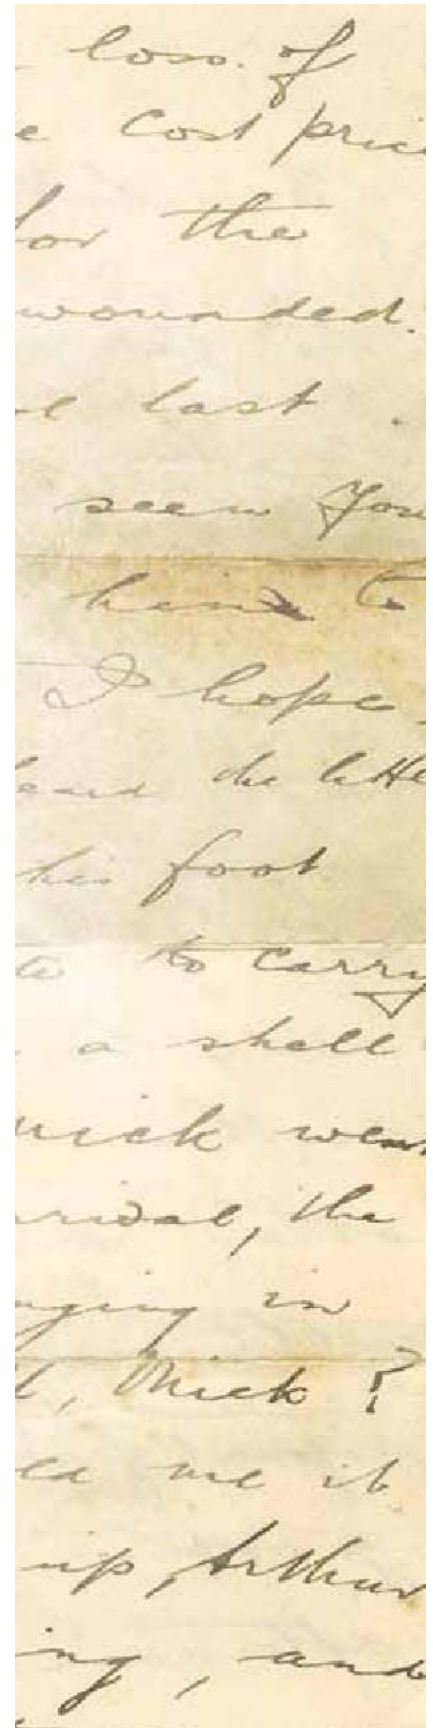 loss of
e cost pric
for the
wounded.
last.
seen You
him to
I hope
the lette
his foot
to carry
a shell
mick wen
rrival, the
nging in
t, Mick ?
ed me it
up, Arthur
ing, and